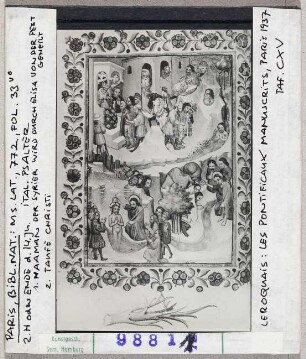 PARIS, BIBL. NAT.: MS. LAT., 772, FOL. 33 V°
2. H ODER ENDE d. 14. Jh. ITAL. PSALTER
1. NAAMAN DER SYRIER WIRD DURCH ELISA VON DER PEST
GEHEILT
2. TAUFE CHRISTI
LEROQUAIS: LES PONTIFICAUX MANUSCRITS, PARIS 1937
TAF. CXV
Kunstgesch.
Sem. Hamburg
9881